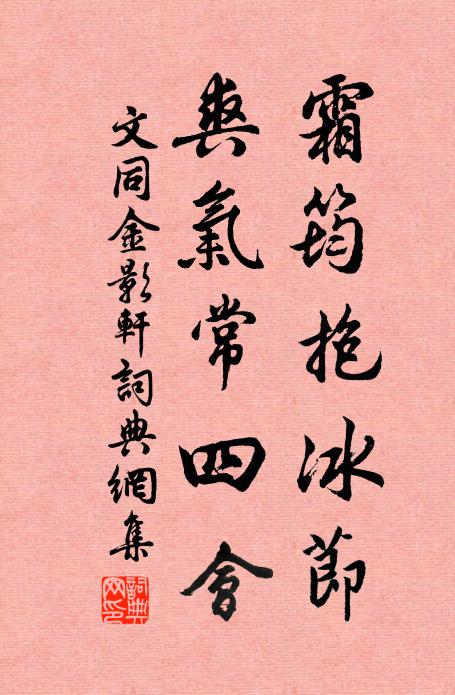 霜筠抱冰節
爽氣常四會
文同金影軒詞典網集
詞典網印